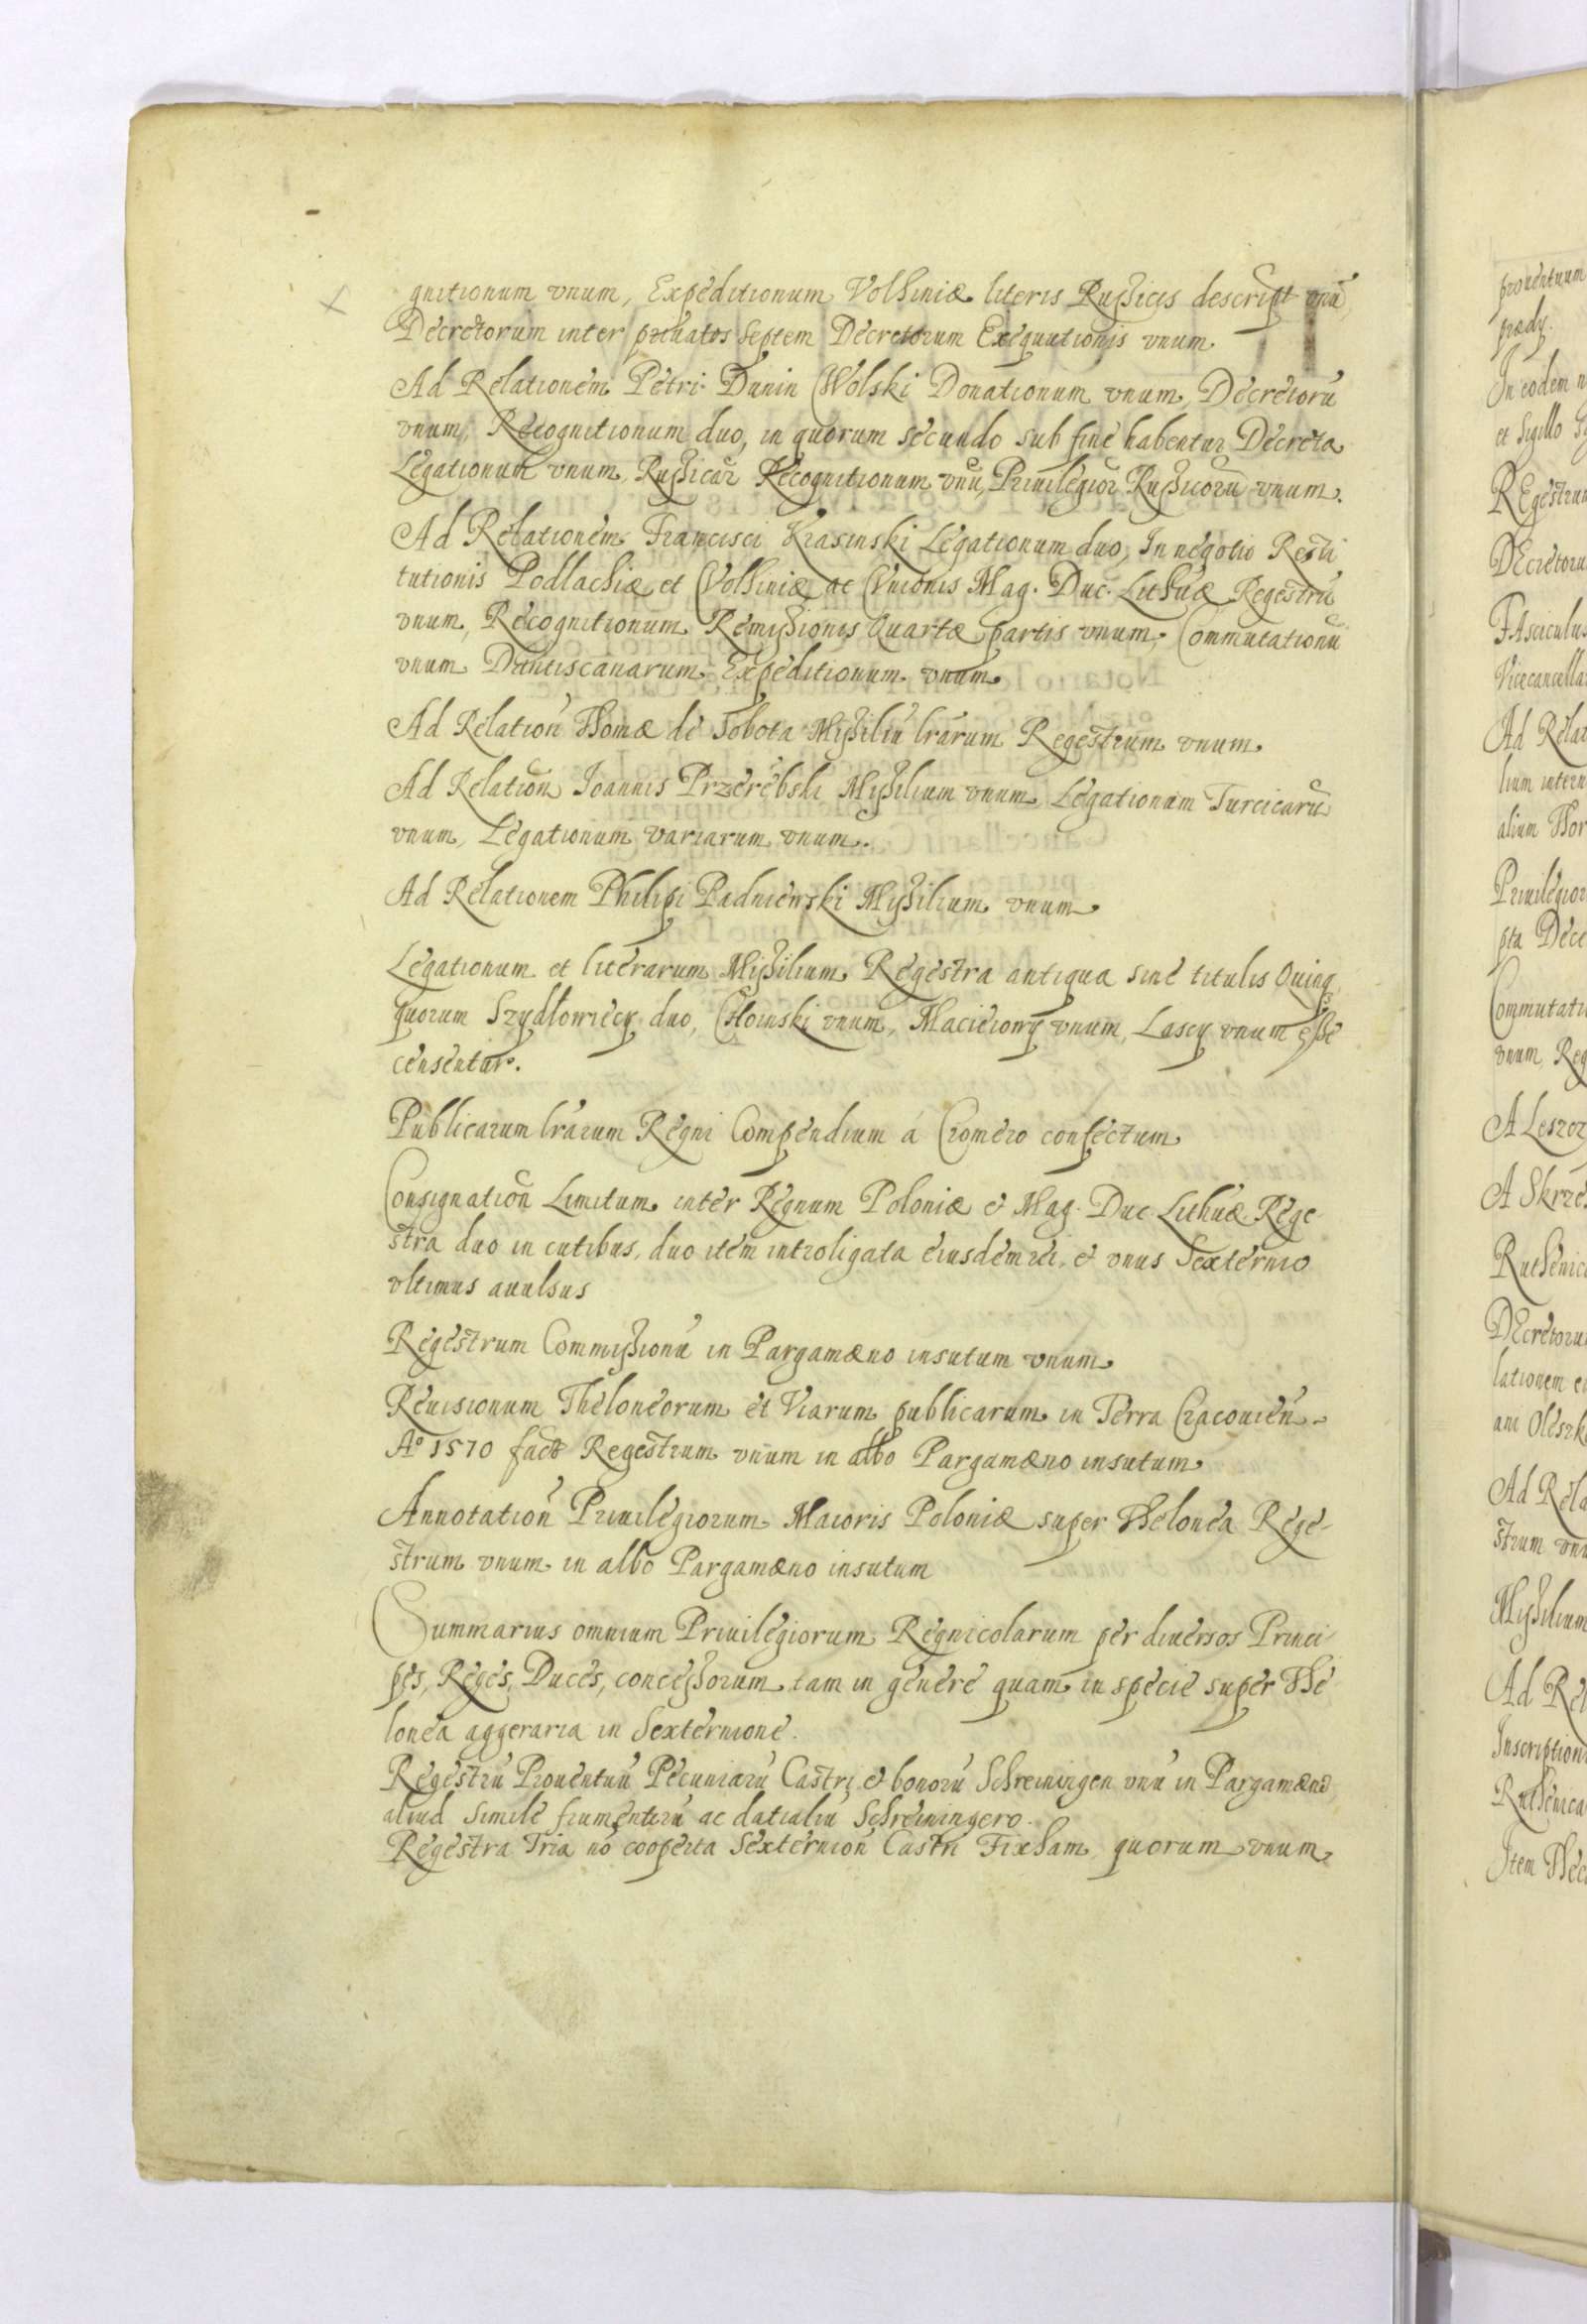 gnitionum vnum, Expeditionum Volhiniæ literis Russicis descript vnũ,
Decretorum inter priuatos Septem Decretorum Exequutionis vnum.
Ad Relationem Petri Dunin Wolski Donationum vnum, Decretorũ
vnum, Recognitionum duo, in quorum secundo sub fine habentur Decreta
Legationum vnum, Russicar Recognitionum vnũ, Priuilegior Russicorũ vnum.
Ad Relationem Francisci Krasinski Legationum duo, In negotio Resti
tutionis Podlachiæ et Volhiniæ ac Vnionis Mag. Duc. Lithuæ Regestrũ
vnum, Recognitionum Remissionis Quartæ partis vnum, Commutationũ
vnum Dantiscanarum Expeditionum vnum
Ad Relation̄ Thomæ de Sobota Missiliũ lrarum Regestrum vnum.
Ad Relation̄ Ioannis Przerębski Missilium vnum Legationum Turcicarũ
vnum, Legationum variarum vnum.
Ad Relationem Philipi Padniewski Missilium vnum
Legationum et literarum Missilium Regestra antiqua sine titulis Quinq
quorum Szydłowiecy duo, Choinski vnum, Macieiowy vnum, Lascy vnum esse
censentur.
Publicarum lrarum Regni Compendium á Cromero confectum
Consignation̄ Limitum inter Regnum Poloniæ & Mag. Duc Lithuæ Rege
stra duo in cutibus, duo item introligata eiusdem rei, & vnus Sexternio
vltimus auulsus
Regestrum Commissionũ in Pargamæno insutum vnum
Reuisionum Theloneorum et Viarum publicarum in Terra Cracouien̄
Aº 1570 fact Regestrum vnum in albo Pargamæno insutum
Annotation̄ Priuilegiorum Maioris Poloniæ super Thelonea Rege-
strum vnum in albo Pargamæno insutum
Summarius omnium Priuilegiorum Regnicolarum per diuersos Princi
pes, Reges, Duces, concessorum tam in genere quam in specie super The
lonea aggeraria in Sexternione.
Regestrũ Prouentuũ Pecuniarũ Castri & bonorũ Schreiningen vnũ in Pargamæno
aliud simile frumentorũ ac datialiũ Schreiningero.
Regestra Tria nõ cooperta Sexternion̄ Castri Fixham, quorum vnum
prouentuum
prædy.
In eodem
et Sigillo
REgestrum
DEcretoru
FAsciculus
Vicecancella
Ad Relat
lium intern
alium Thor
Priuilegior
pta Dece
Commutati
vnum, Reg
A Leszcz
A Skrze
Ruthenic
DEcretoru
lationem
ani Oleszk
Ad Rela
strum vnu
Missilium
Ad Re
Inscription
Ruthenica
Item